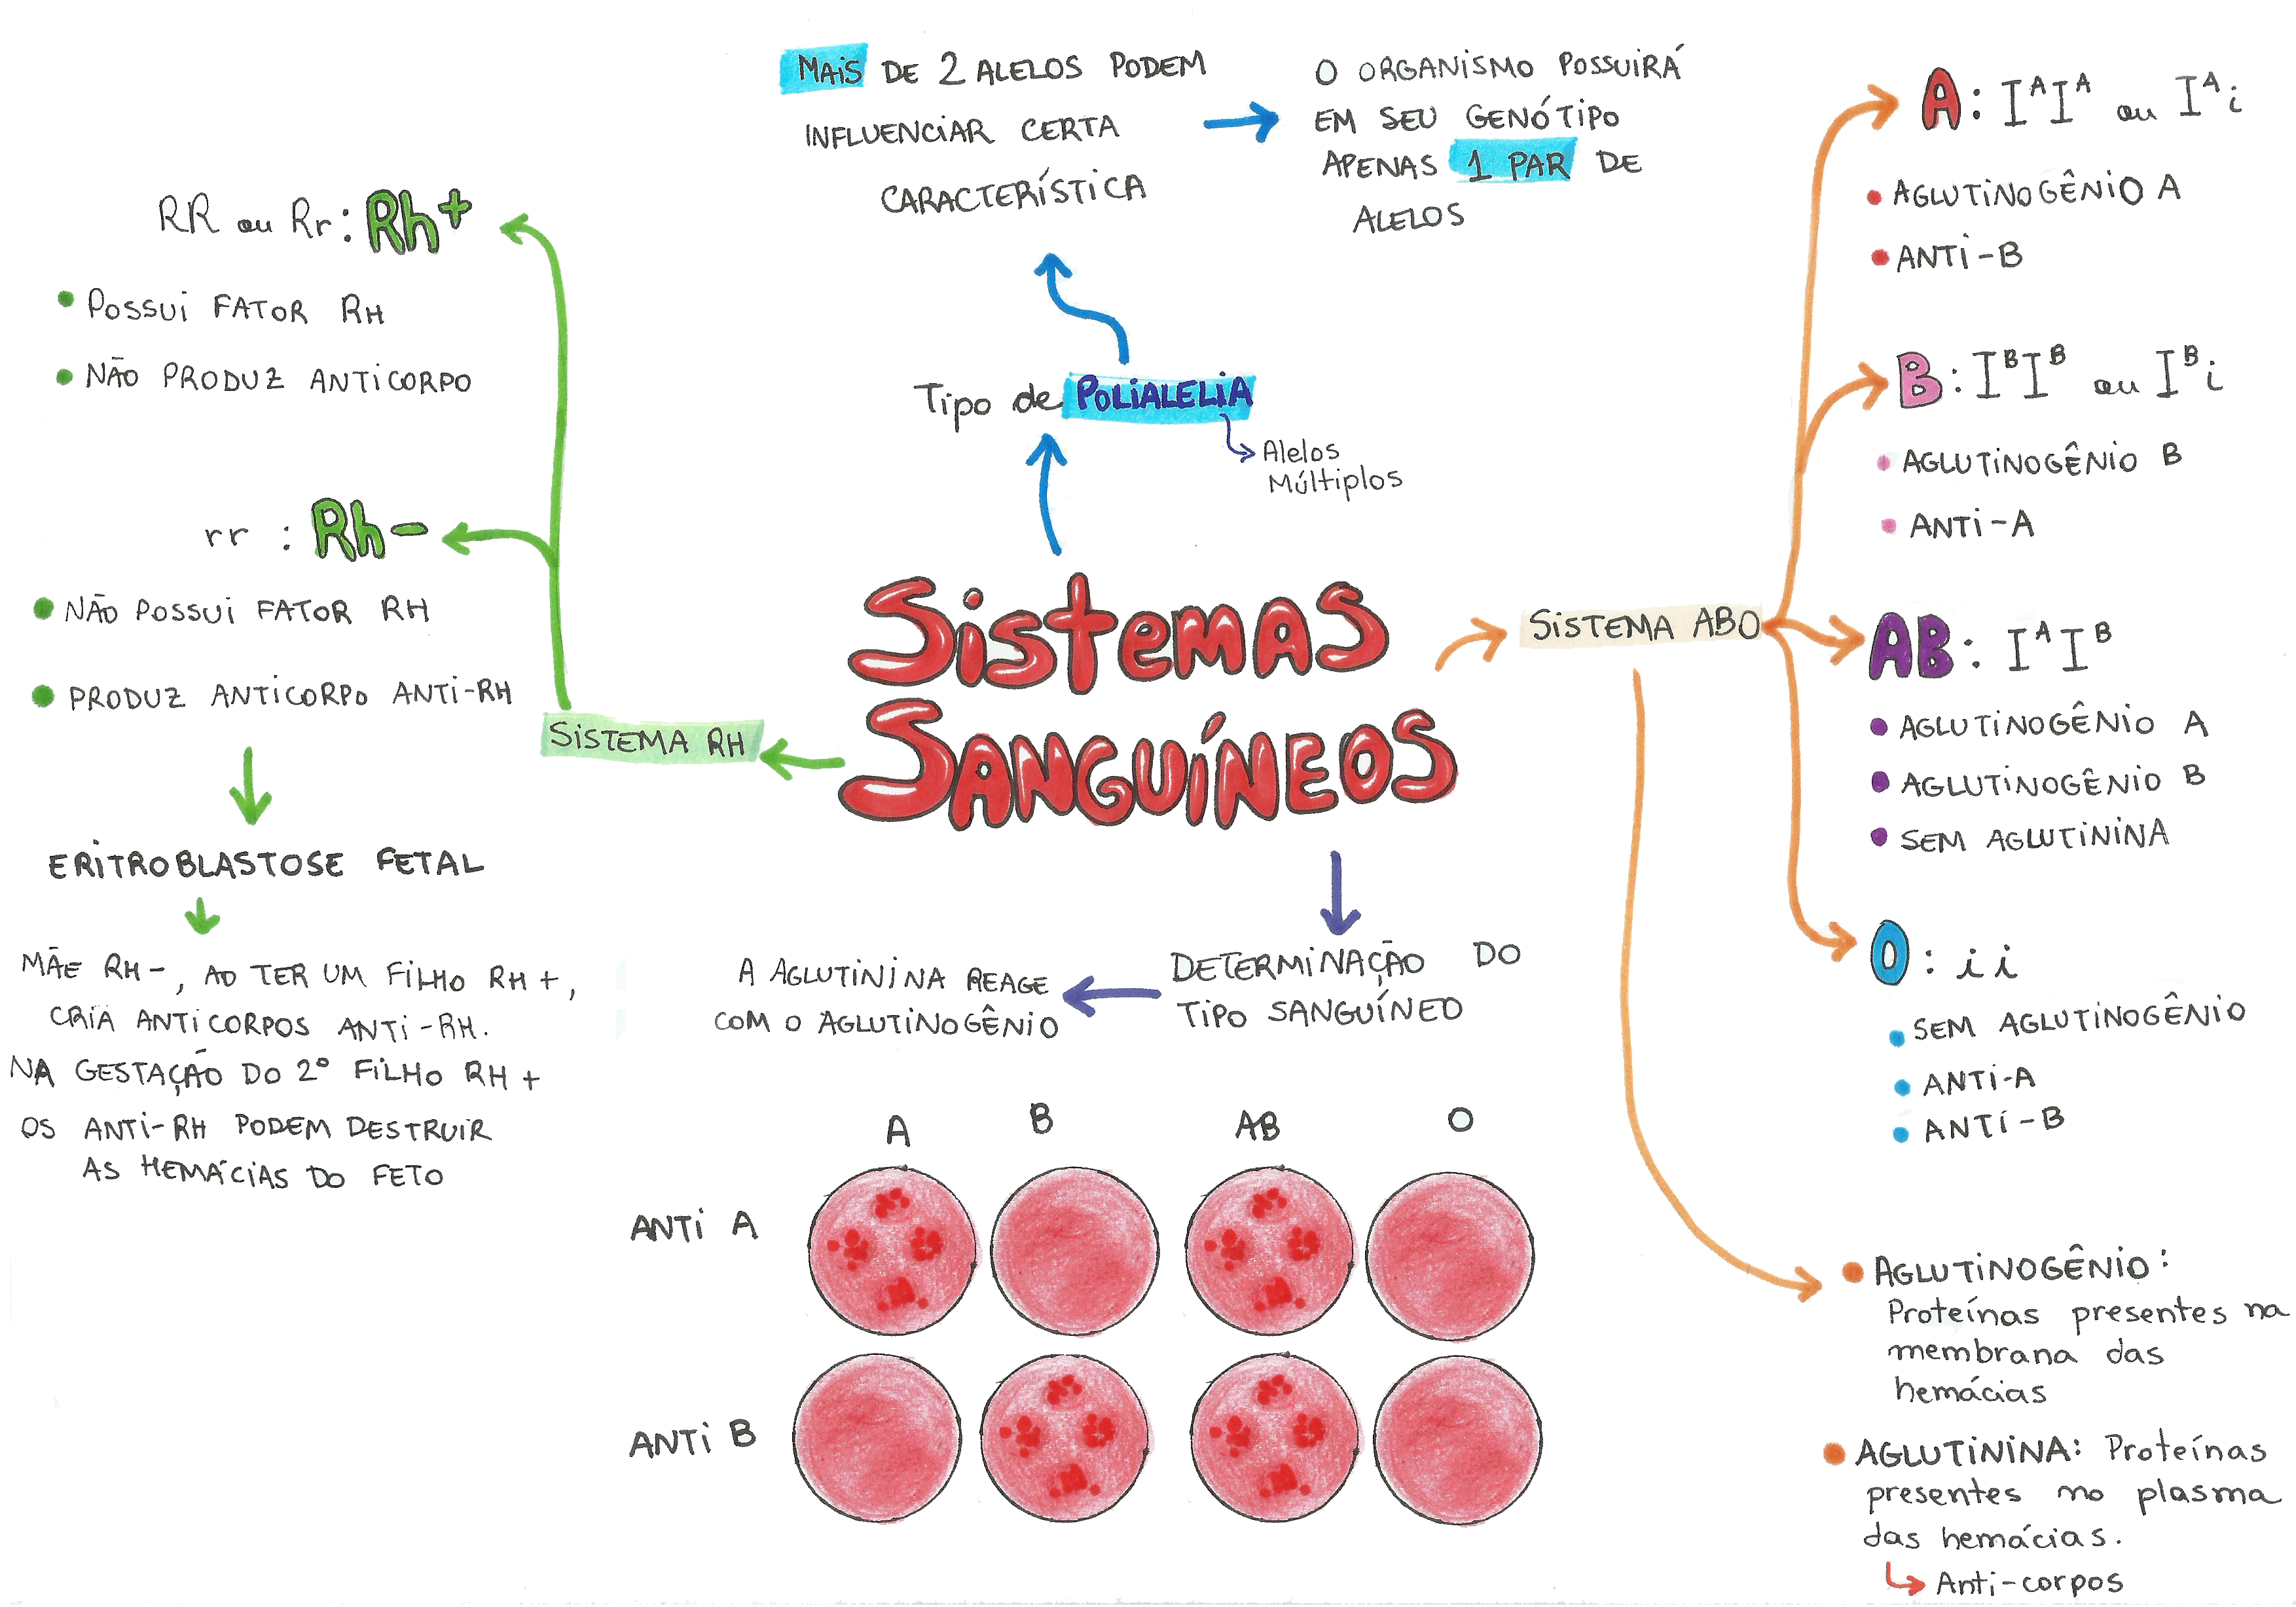 Sistemas
Sanguíneos
Tipo de POLIALELIA
Alelos
Múltiplos
MAIS DE 2 ALELOS PODEM
INFLUENCIAR CERTA
CARACTERÍSTICA
O ORGANISMO POSSUIRÁ
EM SEU GENÓTIPO
APENAS 1 PAR DE
ALELOS
SISTEMA ABO
A: IᴬIᴬ ou Iᴬi
AGLUTINOGÊNIO A
ANTI-B
B: IᴮIᴮ ou Iᴮi
AGLUTINOGÊNIO B
ANTI-A
AB: IᴬIᴮ
AGLUTINOGÊNIO A
AGLUTINOGÊNIO B
SEM AGLUTININA
O: ii
SEM AGLUTINOGÊNIO
ANTI-A
ANTI-B
AGLUTINOGÊNIO:
Proteínas presentes na
membrana das
hemácias
AGLUTININA: Proteínas
presentes no plasma
das hemácias.
Anti-corpos
SISTEMA RH
RR ou Rr: Rh+
POSSUI FATOR RH
NÃO PRODUZ ANTICORPO
rr : Rh-
NÃO POSSUI FATOR RH
PRODUZ ANTICORPO ANTI-RH
ERITROBLASTOSE FETAL
MÃE RH-, AO TER UM FILHO RH+,
CRIA ANTICORPOS ANTI-RH.
NA GESTAÇÃO DO 2º FILHO RH+
OS ANTI-RH PODEM DESTRUIR
AS HEMÁCIAS DO FETO
DETERMINAÇÃO DO
TIPO SANGUÍNEO
A AGLUTININA REAGE
COM O AGLUTINOGÊNIO
A B AB O
ANTI A
ANTI B